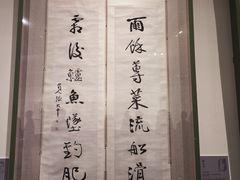 雨餘蓴菜流船滑
霜後鱸魚墜釣肥